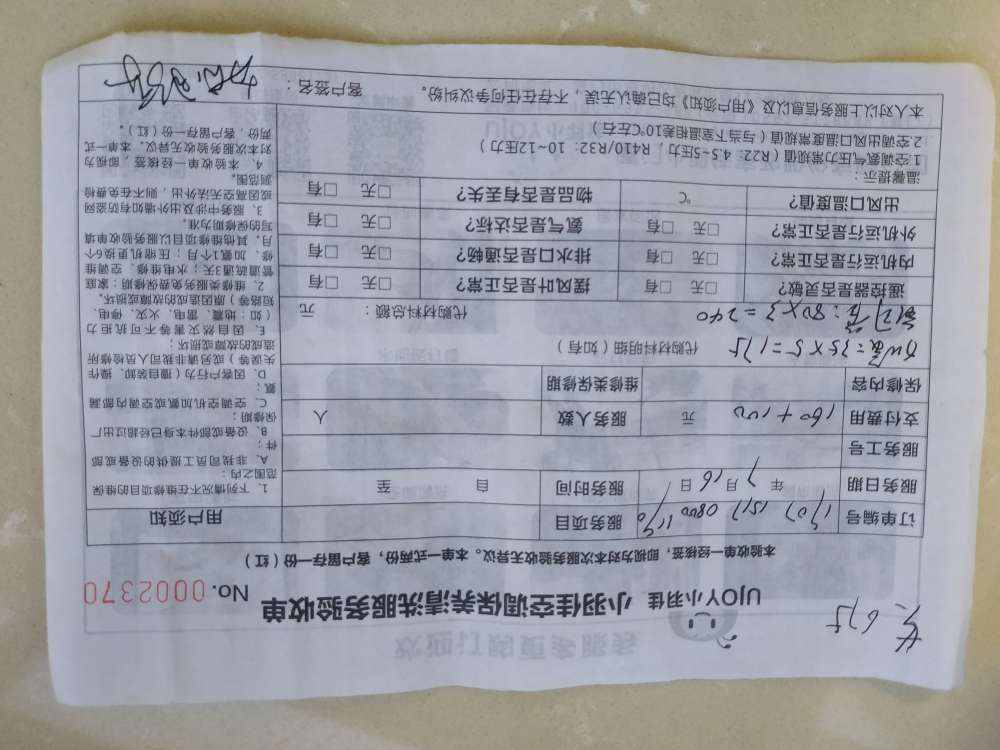 UJOY小羽佳 小羽佳空调保养清洗服务验收单 No. 0002370
本验收单,一经核签,即视为对本次服务验收无异议。本单一式两份,客户留存一份(红)
订单编号 服务项目
服务日期 年 7月16日 服务时间 自 至
服务工号
支付费用 160+100 元 服务人数 人
保修内容 维修类保修期
代购材料明细(如有) 35×5=175
80×3=240 代购材料总额: 元
遥控器是否灵敏? □无 □有 摆风叶是否正常? □无 □有
内机运行是否正常? □无 □有 排水口是否通畅? □无 □有
外机运行是否正常? □无 □有 氨气是否达标? □无 □有
出风口温度值? ℃ 物品是否有丢失? □无 □有
温馨提示:
1.空调氨气压力常规值(R22: 4.5~5压力, R410/R32: 10~12压力)
2.空调出风口温度常规值(与当下室温相差10℃左右)
本人对以上服务信息以及《用户须知》均已确认无误,不存在任何争议纠纷。 客户签名:
用户须知
1、下列情况不在维修项目的维保
范围之内:
A、非我司员工提供的设备或部
件;
B、设备或部件本身已经超过出厂
保修期;
C、空调室机加氨或空调内部漏
氨;
D、因客户行为(擅自装卸、操作
失误等)或另请非我司人员检修所
造成的故障或损坏;
E、因自然灾害等不可抗拒力
(如:地震、雷电、火灾、停电、
短路等)原因造成的故障或损坏。
2、维修类服务免费保修期:家庭
管道疏通3天;水电维修、空调维
修、加氨1个月;压缩机更换6个
月。其他维修项目以服务验收单填
写的保修期为准。
3、服务中涉及出外墙如有防盗网
或因高空无法外出,则不在免费检
测范围。
4、本验收单一经核签,即视为
对本次服务验收无异议。本单一式
两份,客户留存一份(红)。